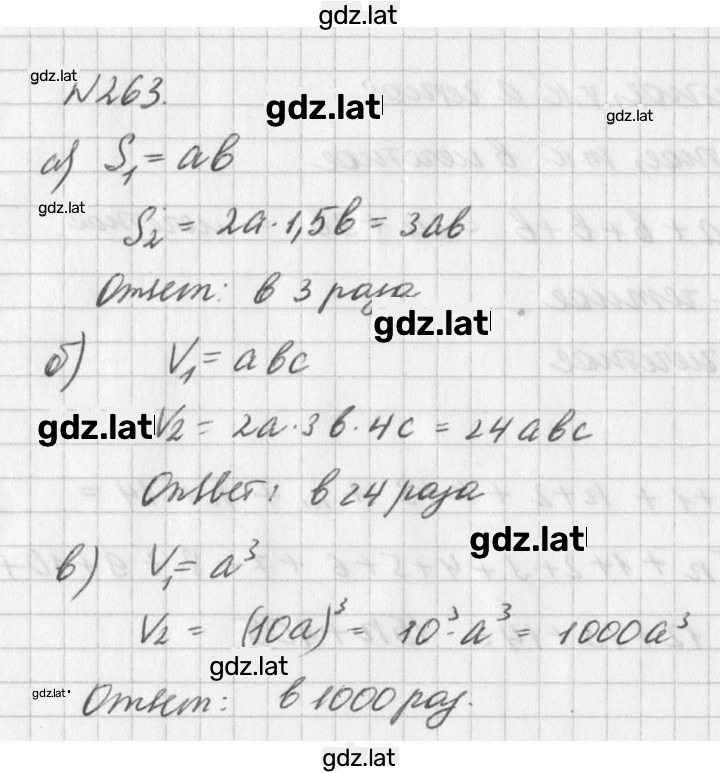 gdz.lat
gdz.lat
N263.
gdz.lat
gdz.lat
а) S₁ = ab
gdz.lat
S₂ = 2a · 1,5b = 3ab
Ответ: в 3 раза
gdz.lat
б) V₁ = abc
gdz.lat V₂ = 2a · 3b · 4c = 24abc
Ответ: в 24 раза
gdz.lat
в) V₁ = a³
V₂ = (10a)³ = 10³ · a³ = 1000a³
gdz.lat
gdz.lat
Ответ: в 1000 раз.
gdz.lat